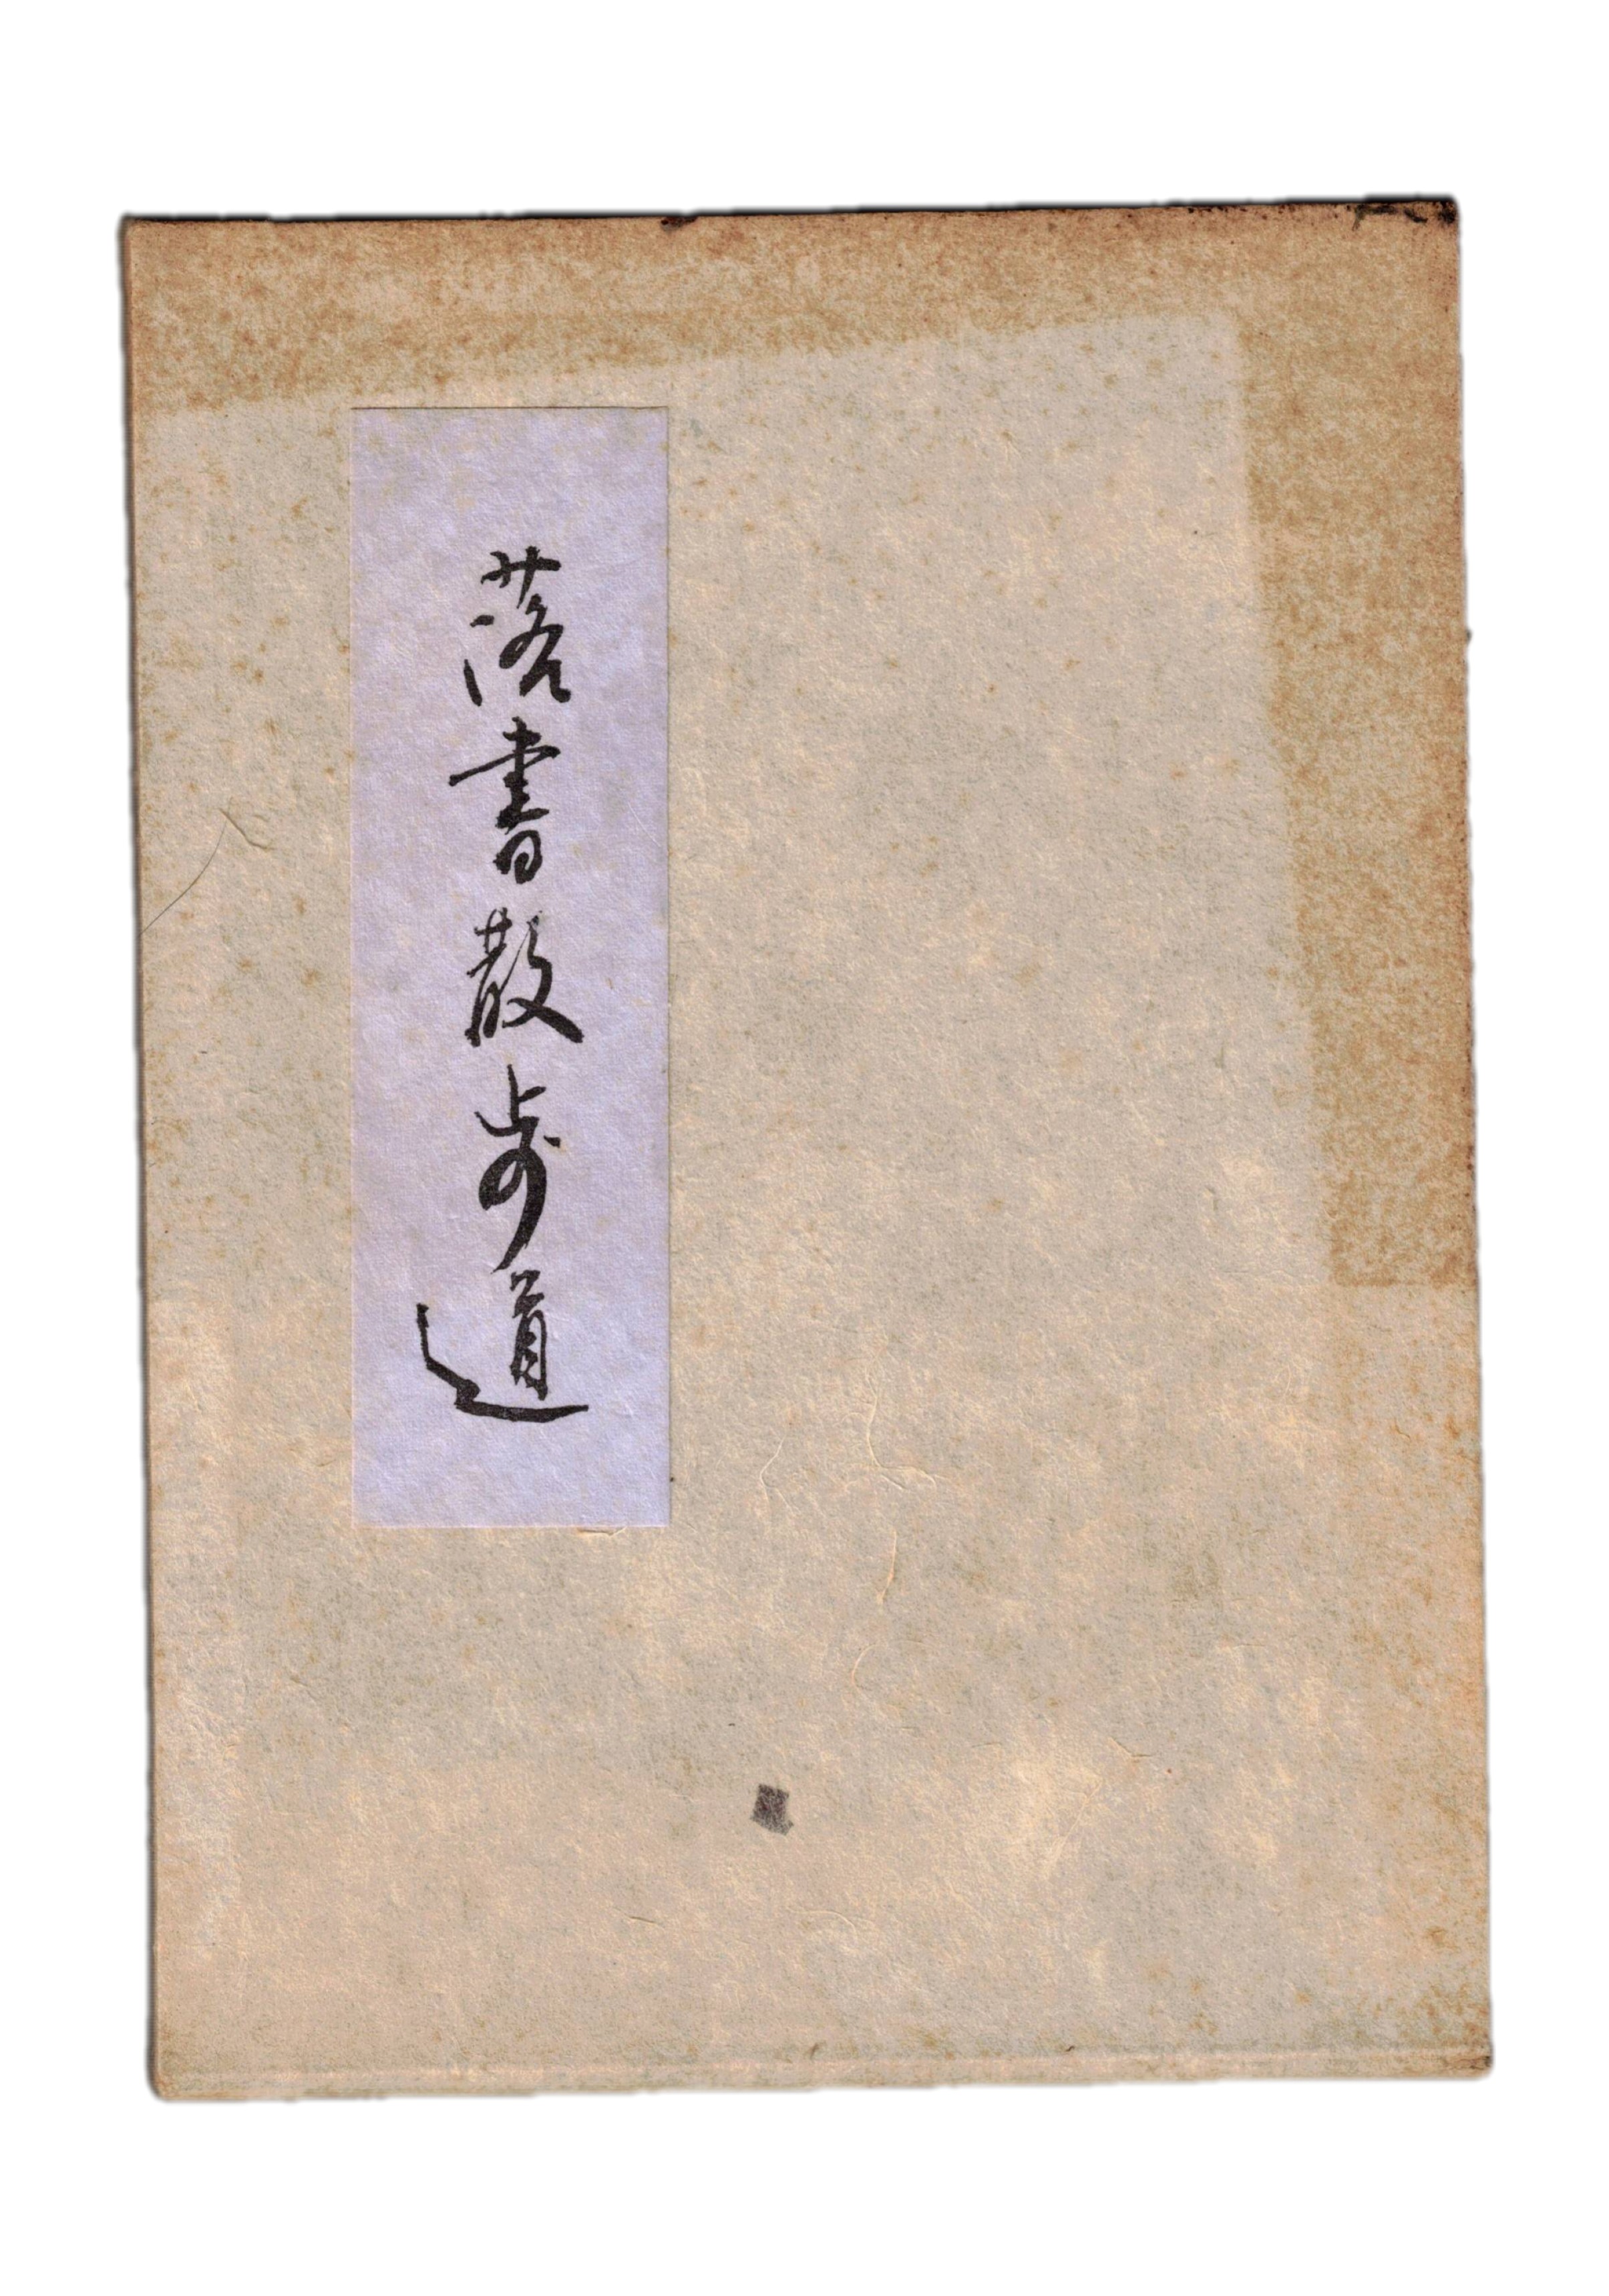 落書散歩道